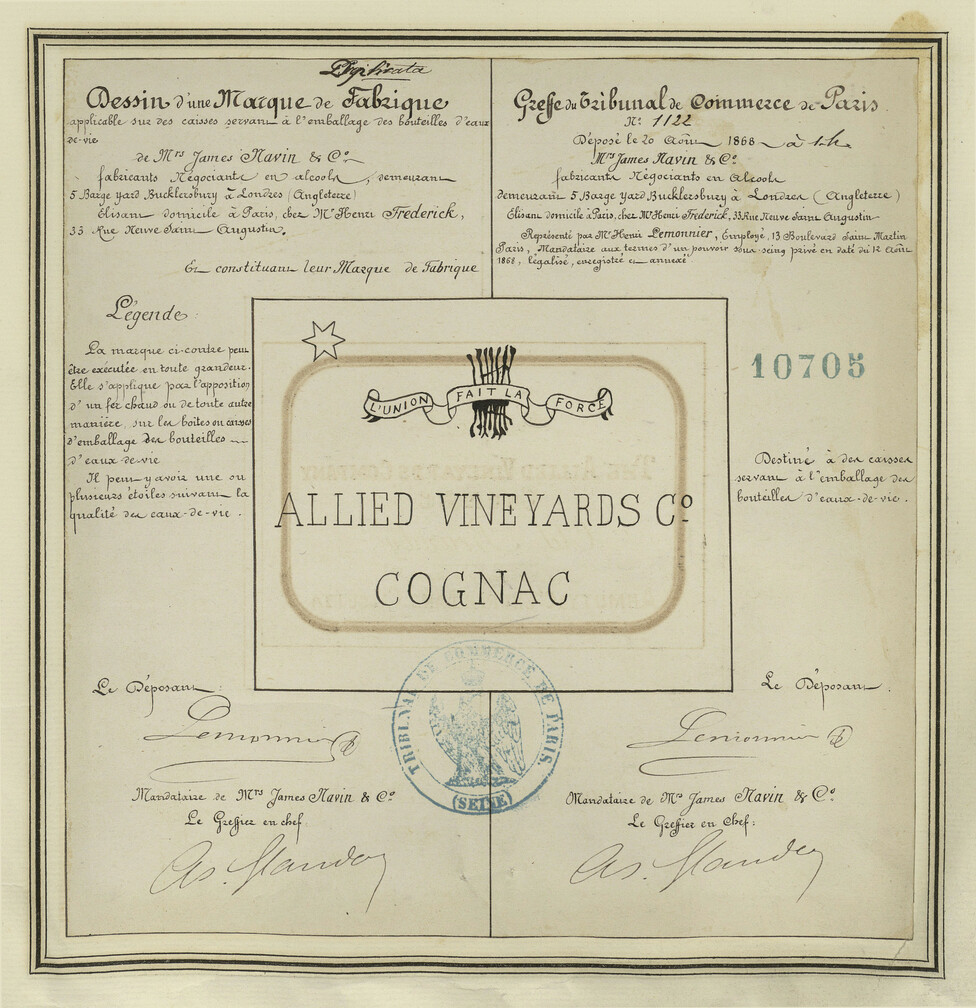 Duplicata
Dessin d'une Marque de Fabrique
applicable sur des caisses servant à l'emballage des bouteilles d'eaux
de-vie
de Mrs James Navin & Co
fabricants Négociants en alcools, demeurant
5 Barge yard Bucklersbury à Londres (Angleterre)
Élisant domicile à Paris, chez Mr Henri Frederick,
33 Rue Neuve Saint Augustin,
Et constituant leur Marque de Fabrique
Légende
La marque ci-contre peut
être exécutée en toute grandeur.
Elle s'applique par l'apposition
d'un fer chaud ou de toute autre
manière, sur les boîtes ou caisses
d'emballage des bouteilles
d'eaux-de-vie
Il peut y avoir une ou
plusieurs étoiles suivant la
qualité des eaux-de-vie.
Greffe du Tribunal de Commerce de Paris
No 1122
Déposé le 20 Août 1868 à 1h
Mrs James Navin & Co
fabricants Négociants en Alcools
demeurant 5 Barge yard Bucklersbury à Londres (Angleterre)
Élisant domicile à Paris, chez Mr Henri Frederick, 33 Rue Neuve Saint Augustin
Représenté par Mr Henri Lemonnier, Employé, 13 Boulevard Saint Martin
Paris, Mandataire aux termes d'un pouvoir sous-seing privé en date du 12 Août
1868, légalisé, enregistré et annexé
10705
Destiné à des caisses
servant à l'emballage des
bouteilles d'eaux-de-vie.
L'UNION FAIT LA FORCE
ALLIED VINEYARDS Co
COGNAC
TRIBUNAL DE COMMERCE DE PARIS.
(SEINE)
Le Déposant
Lemonnier
Mandataire de Mrs James Navin & Co
Le Greffier en chef
Le Déposant.
Lemonnier
Mandataire de Mrs James Navin & Co
Le Greffier en Chef: